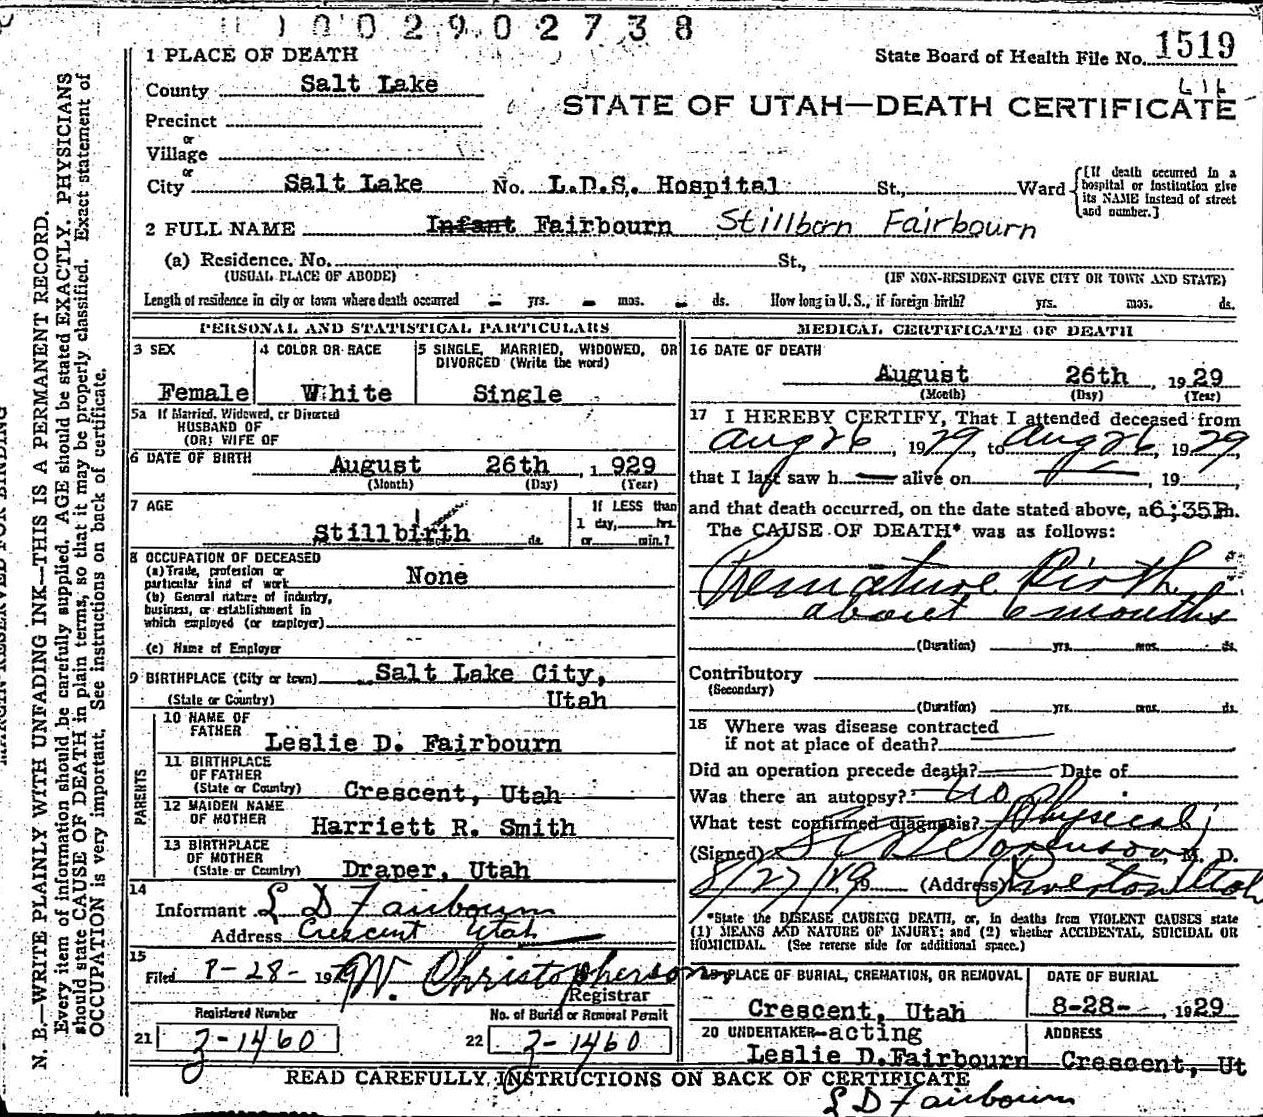 0 0 2 9 0 2 7 3 8
1 PLACE OF DEATH
State Board of Health File No. 1519
County Salt Lake
STATE OF UTAH—DEATH CERTIFICATE
Precinct
or
Village
or
City Salt Lake No. L.D.S. Hospital St., Ward
[If death occurred in a hospital or institution give its NAME instead of street and number.]
2 FULL NAME Infant Fairbourn Stillborn Fairbourn
(a) Residence. No. St.,
(USUAL PLACE OF ABODE) (IF NON-RESIDENT GIVE CITY OR TOWN AND STATE)
Length of residence in city or town where death occurred - yrs. - mos. - ds. How long in U. S., if foreign birth? yrs. mos. ds.
PERSONAL AND STATISTICAL PARTICULARS
3 SEX
Female
4 COLOR OR RACE
White
5 SINGLE, MARRIED, WIDOWED, OR
DIVORCED (Write the word)
Single
5a If Married, Widowed, or Divorced
HUSBAND OF
(OR) WIFE OF
6 DATE OF BIRTH August 26th, 1929
(Month) (Day) (Year)
7 AGE
Stillbirth ds.
If LESS than
1 day, hrs.
or min.?
8 OCCUPATION OF DECEASED
(a) Trade, profession or
particular kind of work None
(b) General nature of industry,
business, or establishment in
which employed (or employer)
(c) Name of Employer
9 BIRTHPLACE (City or town) Salt Lake City,
(State or Country) Utah
PARENTS
10 NAME OF
FATHER
Leslie D. Fairbourn
11 BIRTHPLACE
OF FATHER
(State or Country) Crescent, Utah
12 MAIDEN NAME
OF MOTHER
Harriett R. Smith
13 BIRTHPLACE
OF MOTHER
(State or Country) Draper, Utah
14
Informant L D Fairbourn
Address Crescent Utah
15
Filed 8-28- 1929 W. Christopherson
Registrar
Registered Number
21 3-1460
No. of Burial or Removal Permit
22 3-1460
MEDICAL CERTIFICATE OF DEATH
16 DATE OF DEATH
August 26th, 1929
(Month) (Day) (Year)
17 I HEREBY CERTIFY, That I attended deceased from
Aug 26, 1929, to Aug 26, 1929,
that I last saw h alive on , 19 ,
and that death occurred, on the date stated above, at 6:35P.m.
The CAUSE OF DEATH* was as follows:
Premature Birth
about 6 months
(Duration) yrs. mos. ds.
Contributory
(Secondary)
(Duration) yrs. mos. ds.
18 Where was disease contracted
if not at place of death?
Did an operation precede death? Date of
Was there an autopsy? no
What test confirmed diagnosis? Physical
(Signed) Sorenson, M. D.
8/27/29 19 (Address) Riverton Utah
*State the DISEASE CAUSING DEATH, or, in deaths from VIOLENT CAUSES state
(1) MEANS AND NATURE OF INJURY; and (2) whether ACCIDENTAL, SUICIDAL OR
HOMICIDAL. (See reverse side for additional space.)
19 PLACE OF BURIAL, CREMATION, OR REMOVAL
Crescent, Utah
DATE OF BURIAL
8-28- , 1929
20 UNDERTAKER-acting
Leslie D. Fairbourn
ADDRESS
Crescent, Ut
READ CAREFULLY INSTRUCTIONS ON BACK OF CERTIFICATE
L D Fairbourn
MARGIN RESERVED FOR BINDING
N. B.—WRITE PLAINLY WITH UNFADING INK—THIS IS A PERMANENT RECORD.
Every item of information should be carefully supplied. AGE should be stated EXACTLY. PHYSICIANS
should state CAUSE OF DEATH in plain terms, so that it may be properly classified. Exact statement of
OCCUPATION is very important. See instructions on back of certificate.